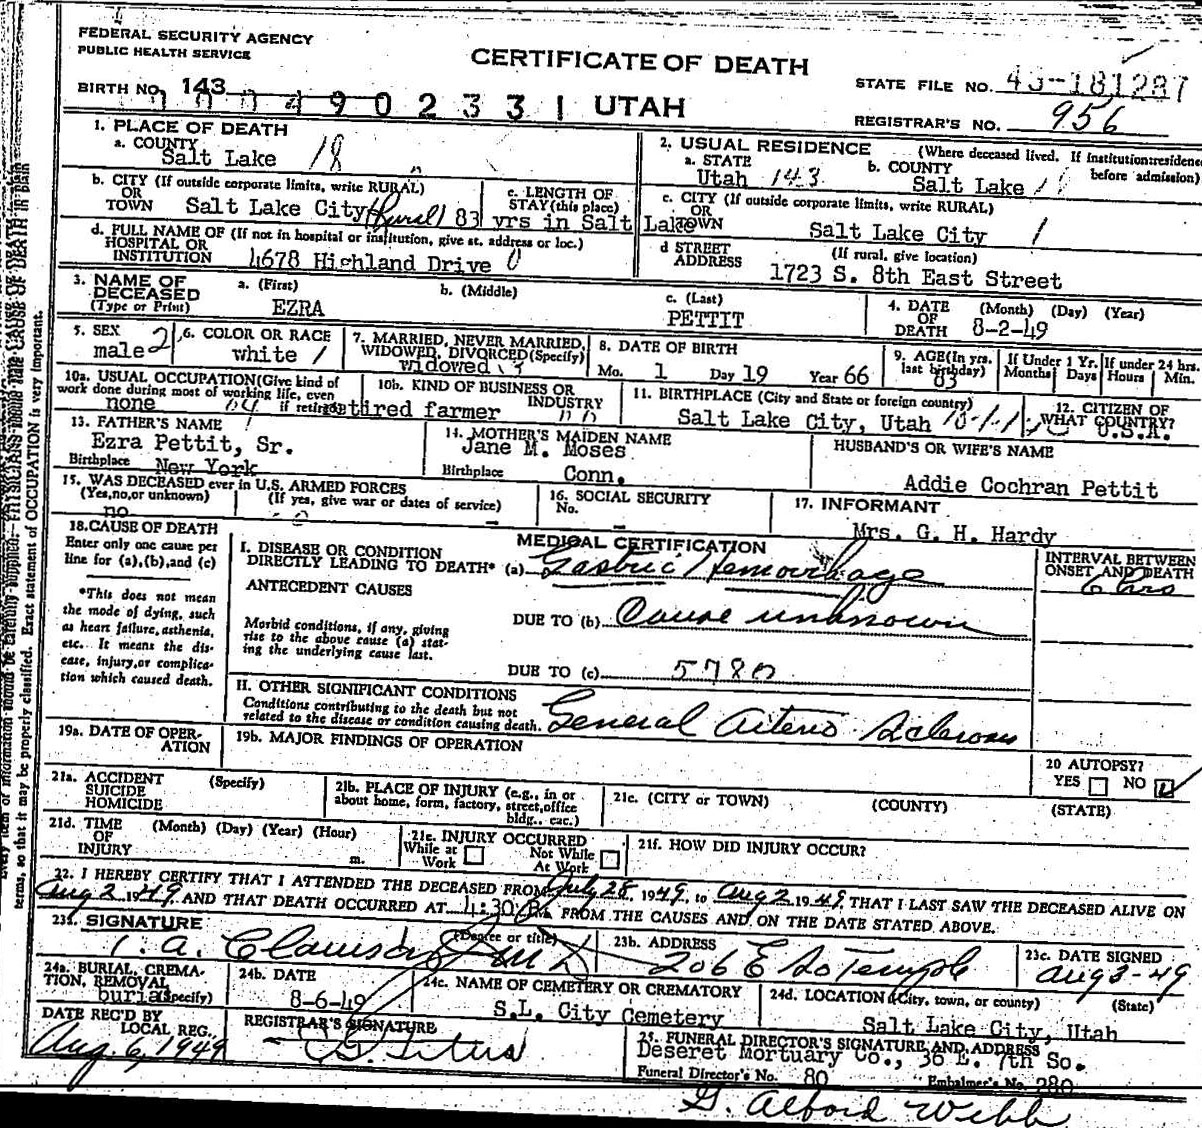 FEDERAL SECURITY AGENCY
PUBLIC HEALTH SERVICE
CERTIFICATE OF DEATH
STATE FILE NO. 43-181287
BIRTH NO. 143
000490233 | UTAH
REGISTRAR'S NO. 956
1. PLACE OF DEATH
a. COUNTY
Salt Lake 18
2. USUAL RESIDENCE (Where deceased lived. If institution: residence before admission)
a. STATE
Utah 143
b. COUNTY
Salt Lake
b. CITY (If outside corporate limits, write RURAL)
OR
TOWN Salt Lake City (Rural)
c. LENGTH OF
STAY (this place)
83 yrs in Salt Lake
c. CITY (If outside corporate limits, write RURAL)
OR
TOWN Salt Lake City 1
d. FULL NAME OF (If not in hospital or institution, give st. address or loc.)
HOSPITAL OR
INSTITUTION 4678 Highland Drive 0
d STREET
ADDRESS
(If rural, give location)
1723 S. 8th East Street
3. NAME OF
DECEASED
(Type or Print)
a. (First)
EZRA
b. (Middle)
c. (Last)
PETTIT
4. DATE
OF
DEATH
(Month) (Day) (Year)
8-2-49
5. SEX
male 2
6. COLOR OR RACE
white 1
7. MARRIED, NEVER MARRIED,
WIDOWED, DIVORCED (Specify)
widowed 3
8. DATE OF BIRTH
Mo. 1 Day 19 Year 66
9. AGE (In yrs.
last birthday)
83
If Under 1 Yr.
Months Days
If under 24 hrs.
Hours Min.
10a. USUAL OCCUPATION (Give kind of
work done during most of working life, even
if retired)
none
10b. KIND OF BUSINESS OR
INDUSTRY
retired farmer
11. BIRTHPLACE (City and State or foreign country)
Salt Lake City, Utah
12. CITIZEN OF
WHAT COUNTRY?
U.S.A.
13. FATHER'S NAME
Ezra Pettit, Sr.
Birthplace New York
14. MOTHER'S MAIDEN NAME
Jane M. Moses
Birthplace Conn.
HUSBAND'S OR WIFE'S NAME
Addie Cochran Pettit
15. WAS DECEASED ever in U.S. ARMED FORCES
(Yes, no, or unknown) (If yes, give war or dates of service)
no
16. SOCIAL SECURITY
No. -
17. INFORMANT
Mrs. G. H. Hardy
18. CAUSE OF DEATH
Enter only one cause per
line for (a), (b), and (c)
*This does not mean
the mode of dying, such
as heart failure, asthenia,
etc. It means the dis-
ease, injury, or complica-
tion which caused death.
MEDICAL CERTIFICATION
I. DISEASE OR CONDITION
DIRECTLY LEADING TO DEATH* (a) Gastric Hemorrhage
INTERVAL BETWEEN
ONSET AND DEATH
6 hrs
ANTECEDENT CAUSES
DUE TO (b) Cause unknown
Morbid conditions, if any, giving
rise to the above cause (a) stat-
ing the underlying cause last.
DUE TO (c) 5780
II. OTHER SIGNIFICANT CONDITIONS
Conditions contributing to the death but not
related to the disease or condition causing death.
General Arterio Sclerosis
19a. DATE OF OPER-
ATION
19b. MAJOR FINDINGS OF OPERATION
20 AUTOPSY?
YES NO
21a. ACCIDENT (Specify)
SUICIDE
HOMICIDE
21b. PLACE OF INJURY (e.g., in or
about home, form, factory, street, office
bldg., etc.)
21c. (CITY or TOWN) (COUNTY) (STATE)
21d. TIME (Month) (Day) (Year) (Hour)
OF
INJURY m.
21e. INJURY OCCURRED
While at
Work
Not While
At Work
21f. HOW DID INJURY OCCUR?
22. I HEREBY CERTIFY THAT I ATTENDED THE DECEASED FROM July 28, 1949, to Aug 2 1949, THAT I LAST SAW THE DECEASED ALIVE ON
Aug 2 1949, AND THAT DEATH OCCURRED AT 4:30 P.M. FROM THE CAUSES AND ON THE DATE STATED ABOVE.
23a. SIGNATURE (Degree or title)
Clawson MD
23b. ADDRESS
206 E So Temple
23c. DATE SIGNED
Aug 3-49
24a. BURIAL, CREMA-
TION, REMOVAL
(Specify)
burial
24b. DATE
8-6-49
24c. NAME OF CEMETERY OR CREMATORY
S.L. City Cemetery
24d. LOCATION (City, town, or county) (State)
Salt Lake City, Utah
DATE REC'D BY
LOCAL REG.
Aug. 6, 1949
REGISTRAR'S SIGNATURE
25. FUNERAL DIRECTOR'S SIGNATURE AND ADDRESS
Deseret Mortuary Co., 36 E. 7th So.
Funeral Director's No. 80 Embalmer's No. 280
Webb
terms, so that it may be properly classified. Exact statement of OCCUPATION is very important.